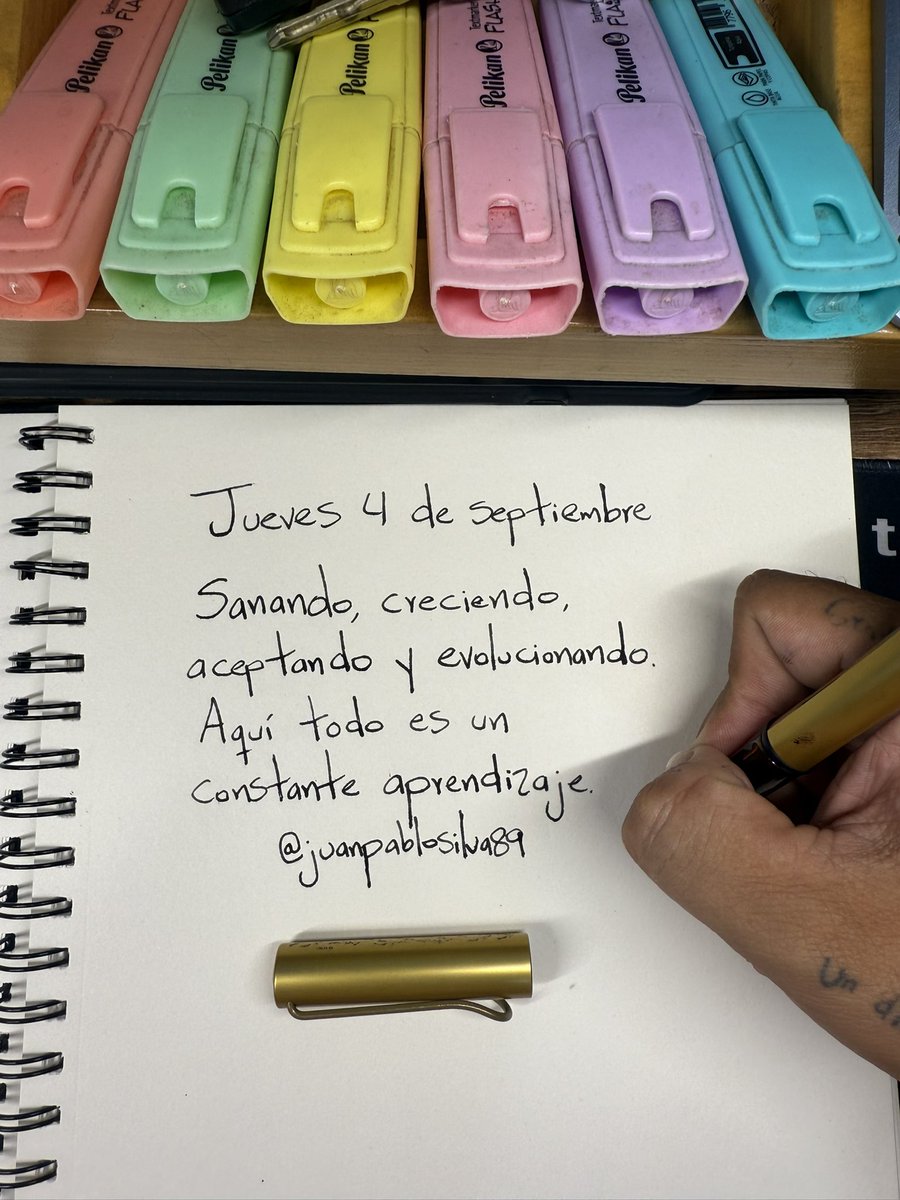 Pelikan
Pelikan
Pelikan
Pelikan
Pelikan
FLASH
Jueves 4 de septiembre
Sanando, creciendo,
aceptando y evolucionando.
Aquí todo es un
constante aprendizaje.
@juanpablosilva89
t
Un